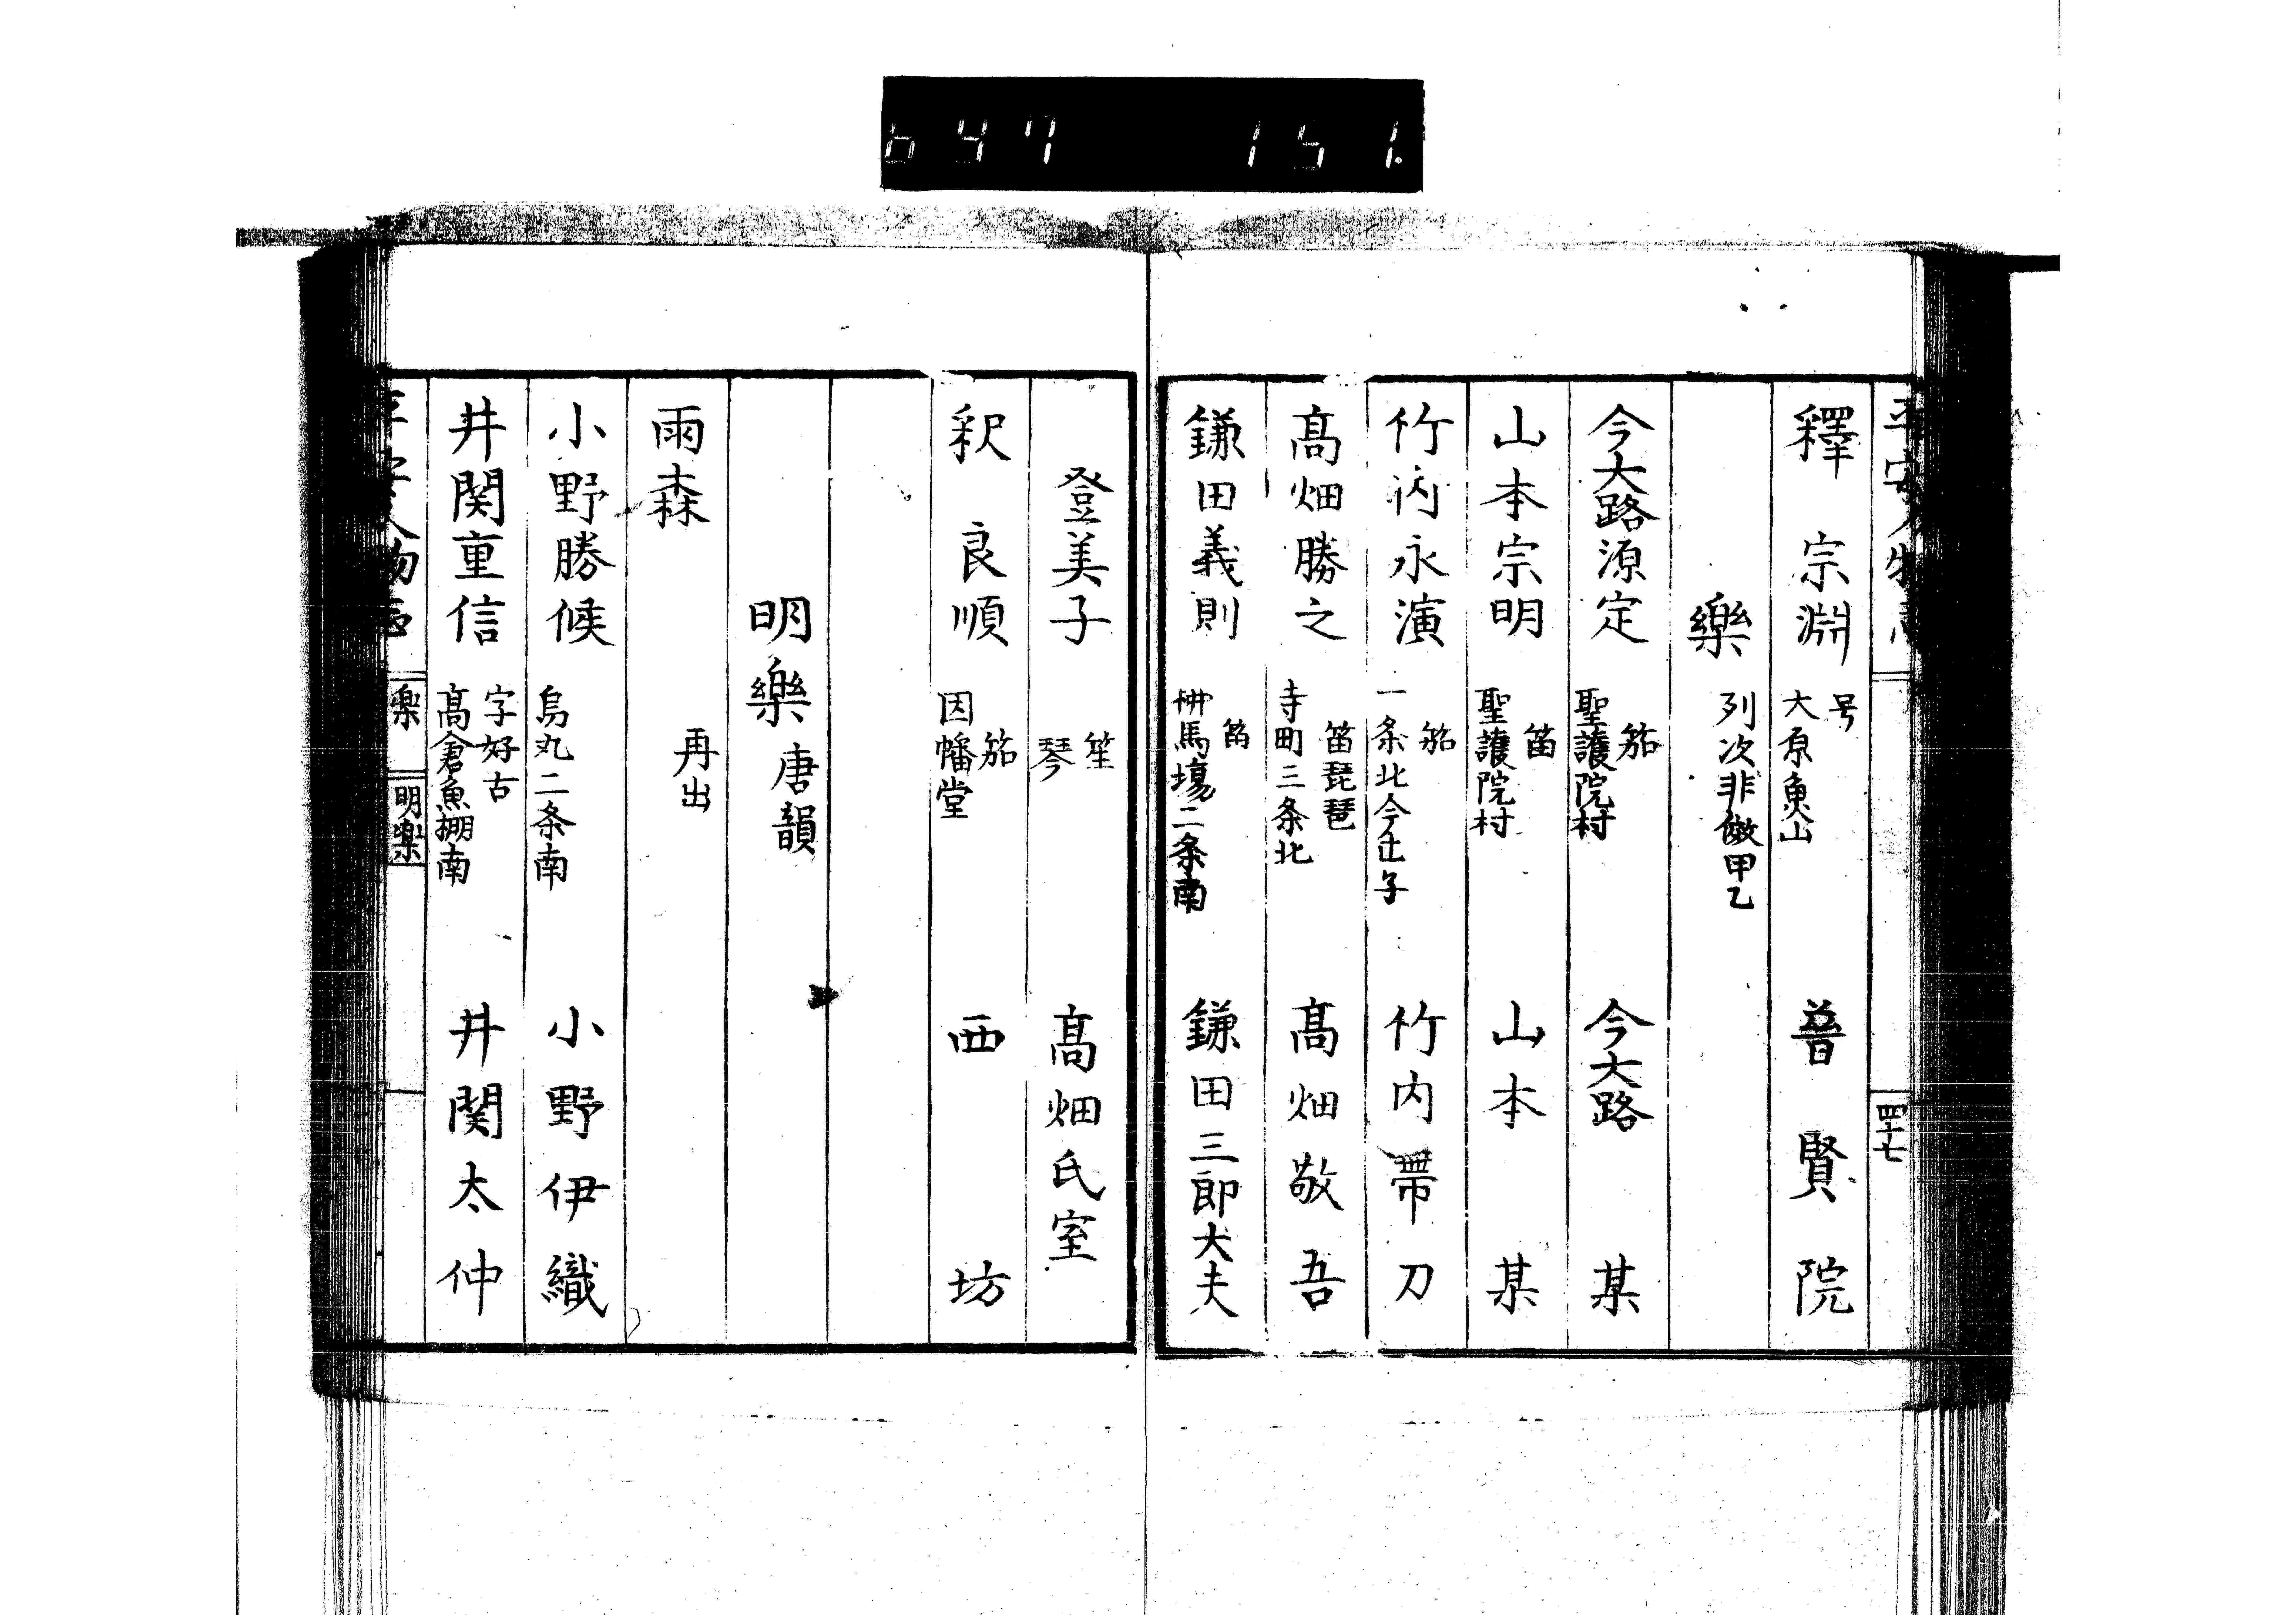 647 151
平安人物志
四十七
釋宗淵 号 大原魚山 普賢院
樂 列次非倣甲乙
今大路源定 笳 聖護院村 今大路某
山本宗明 笛 聖護院村 山本某
竹内永演 笳 一条北今出子 竹内帯刀
髙畑勝之 笛琵琶 寺町三条北 髙畑敬吾
鎌田義則 笛 栁馬場二条南 鎌田三郎大夫
登美子 笙 琴 髙畑氏室
釈良順 笳 因幡堂 西坊
明樂 唐韻
雨森 再出
小野勝候 烏丸二条南 小野伊織
井関重信 字好古 髙倉魚棚南 井関太仲
平安人物志
楽
明楽